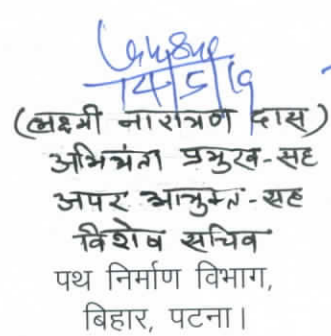 14/5/19
(लक्ष्मी नारायण दास)
अभियंता प्रमुख-सह
अपर आयुक्त-सह
विशेष सचिव
पथ निर्माण विभाग,
बिहार, पटना।